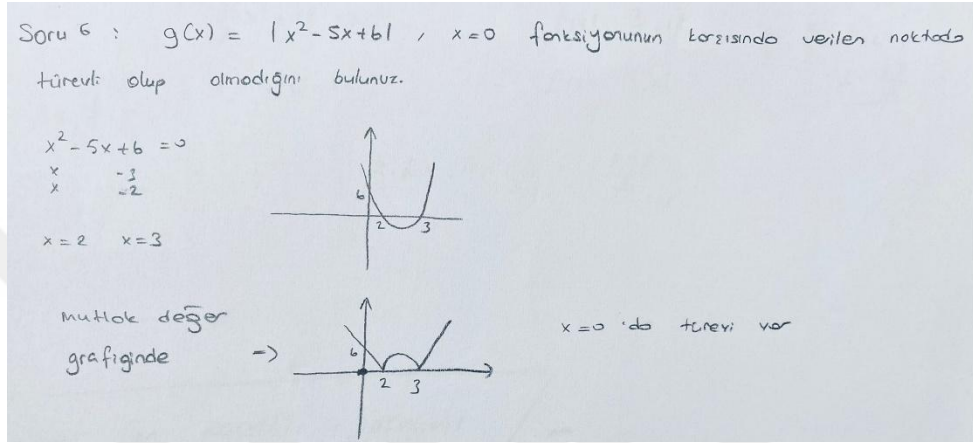 Soru 6 : g(x) = |x² - 5x + 6| , x = 0 fonksiyonunun karşısında verilen noktada
türevli olup olmadığını bulunuz.
x² - 5x + 6 = 0
x -3
x -2
6
2 3
x = 2 x = 3
Mutlak değer
grafiginde =>
6
2 3
x = 0 'da türevi var